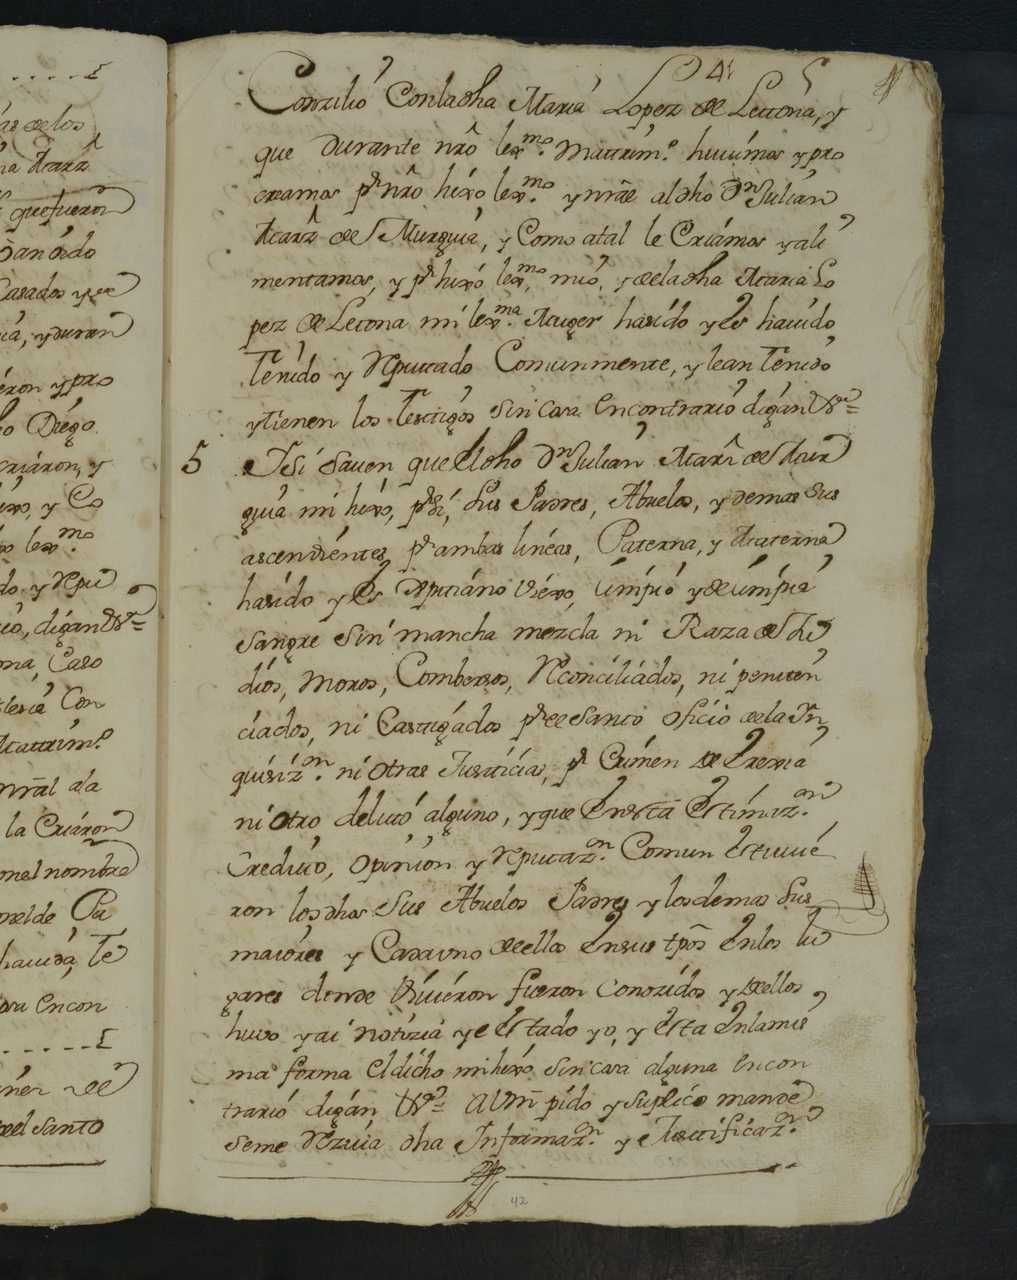 41
Conzilio Con la dha Maria Lopez de Lecona, y
que Durante nrô lexmo. Matrimo. huuimos y pro
creamos pr. nrô hixo lexmo. y nrãl al dho Dn Julian
Martrz de Murguia, y Como atal le Criámos y ali
mentamos, y pr hixo lexmo mio, y de la dha Maria Lo
pez de Lecona mi lexma. Muger hasido y es hauido
Tenido y Reputado Comunmente, y lean Tenido
y tienen los Testigos sin cosa en contrario digan Va=
5 Y si sauen que el dho Dn Julian Martrz de Mur
guia mi hixo, pr si, sus Padres, Abuelos, y demas sus
ascendientes, pr ambas lineas, Paterna, y Materna
hasido y es Xptiano viexo, limpio y de limpia
sangre sin mancha mezcla ni Raza de Ju
dios, Moros, Combersos, Reconciliados, ni peniten
ciados, ni Castigados pr el Santo oficio de la In
quisizn. ni otras Justicias, pr Crimen de Erexia
ni otro delito alguno, y que en esta Estimazon.
Credito, opinion y Reputazon. Comun estuuie
ron los dhos sus Abuelos Padres y los demas sus
maiores y Cada vno de ellos en sus tpôs en los lu
gares donde Viuieron fueron conozidos y de ellos
huuo y ai notizia y e estado yo, y esta en la mis
ma forma el dicho mi hixo sin cosa alguna en con
trario digan Va= A Vm pido y suplico mande
seme Rzuia dha Informazon. y Justificazon.
42
-----
as de los
na Martrz
que fueron
Casados y
ia, y duran
eron y pro
ho Diego
criaron, y
ixo, y Co
xo lexmo.
do y Repu
rio, digan Va=
ona, Caso
lesia Con
Matrimo.
nrãl a la
la Criáron
on el nombre
hauida, Te
osa en con
-----
del Santo